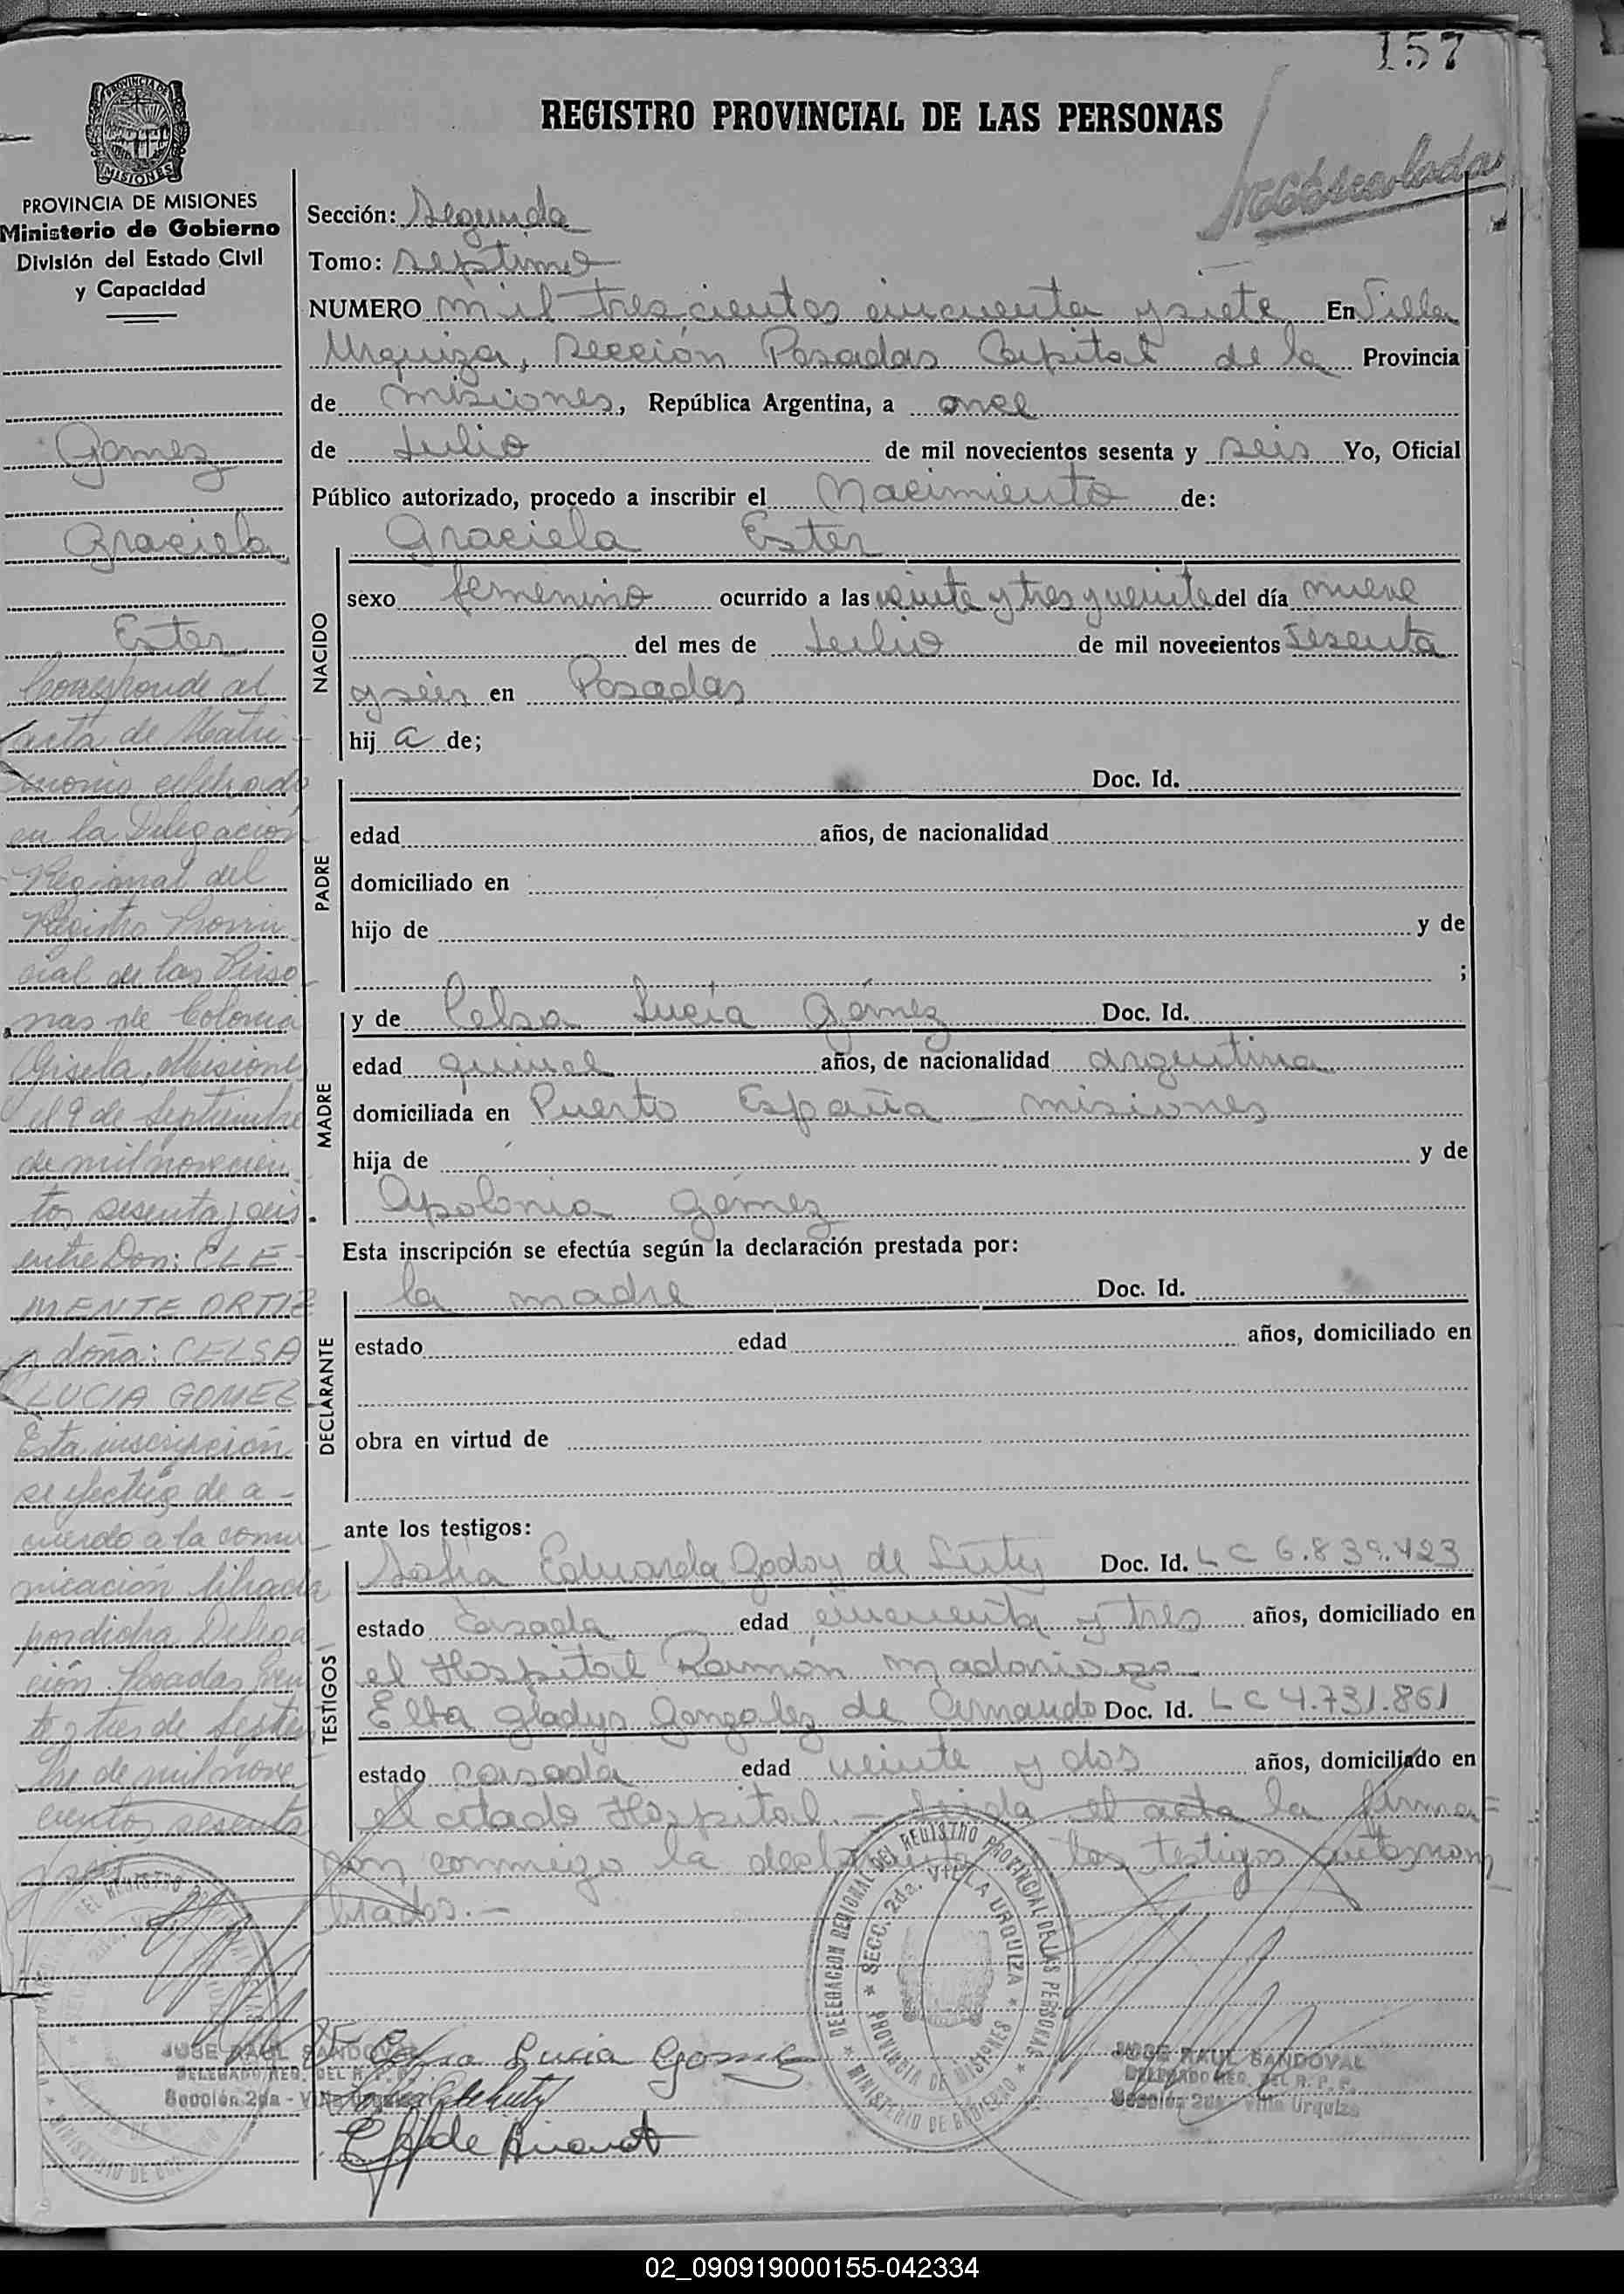 157
REGISTRO PROVINCIAL DE LAS PERSONAS
PROVINCIA DE MISIONES
Ministerio de Gobierno
División del Estado Civil
y Capacidad
Gomez
Graciela
Ester
Corresponde al
acta de Matri-
monio celebrado
en la Delegación
Regional del
Registro Provin
cial de las Perso-
nas de Colonia
Gisela, Misiones
el 9 de Septiembre
de mil novecien
tos sesenta y seis
entre Don: CLE-
MENTE ORTIZ
y doña: CELSA
LUCIA GOMEZ
Esta inscripción
se efectúa de a-
cuerdo a la comu-
nicación librada
por dicha Delega
ción. Posadas, vein
te y tres de Septiem
bre de mil nove
cientos sesenta
y seis
Sección: Segunda
Tomo: septimo
NUMERO mil trescientos cincuenta y siete En Villa
Urquiza, Sección Posadas Capital de la Provincia
de Misiones, República Argentina, a once
de Julio de mil novecientos sesenta y seis Yo, Oficial
Público autorizado, procedo a inscribir el Nacimiento de:
Graciela Ester
NACIDO
sexo femenino ocurrido a las veinte y tres y veinte del día nueve
del mes de Julio de mil novecientos sesenta
y seis en Posadas
hija de;
PADRE
Doc. Id.
edad años, de nacionalidad
domiciliado en
hijo de y de
;
MADRE
y de Celsa Lucía Gómez Doc. Id.
edad quince años, de nacionalidad argentina
domiciliada en Puerto España misiones
hija de y de
Apolonia Gómez
Esta inscripción se efectúa según la declaración prestada por:
DECLARANTE
la madre Doc. Id.
estado edad años, domiciliado en
obra en virtud de
ante los testigos:
TESTIGOS
Sofia Eduarda Godoy de Doc. Id. LC 6.839.423
estado casada edad cincuenta y tres años, domiciliado en
el Hospital Ramón madariaga
Elba Gladys Gonzalez de Doc. Id. LC 4.731.861
estado casada edad veinte y dos años, domiciliado en
el citado Hospital. - Leida el acta la firma=
con conmigo la y los testigos
brados. -
DELEGACION REGIONAL DEL REGISTRO PROVINCIAL DE LAS PERSONAS
SECC. 2da. VILLA URQUIZA
PROVINCIA DE MISIONES
MINISTERIO DE GOBIERNO
Celsa Lucia Gomez
JOSE RAUL SANDOVAL
DELEGADO REG. DEL R. P. P.
Sección 2da - Villa Urquiza
JOSE RAUL SANDOVAL
DELEGADO REG. DEL R. P. P.
Sección 2da - Villa Urquiza
02_090919000155-042334